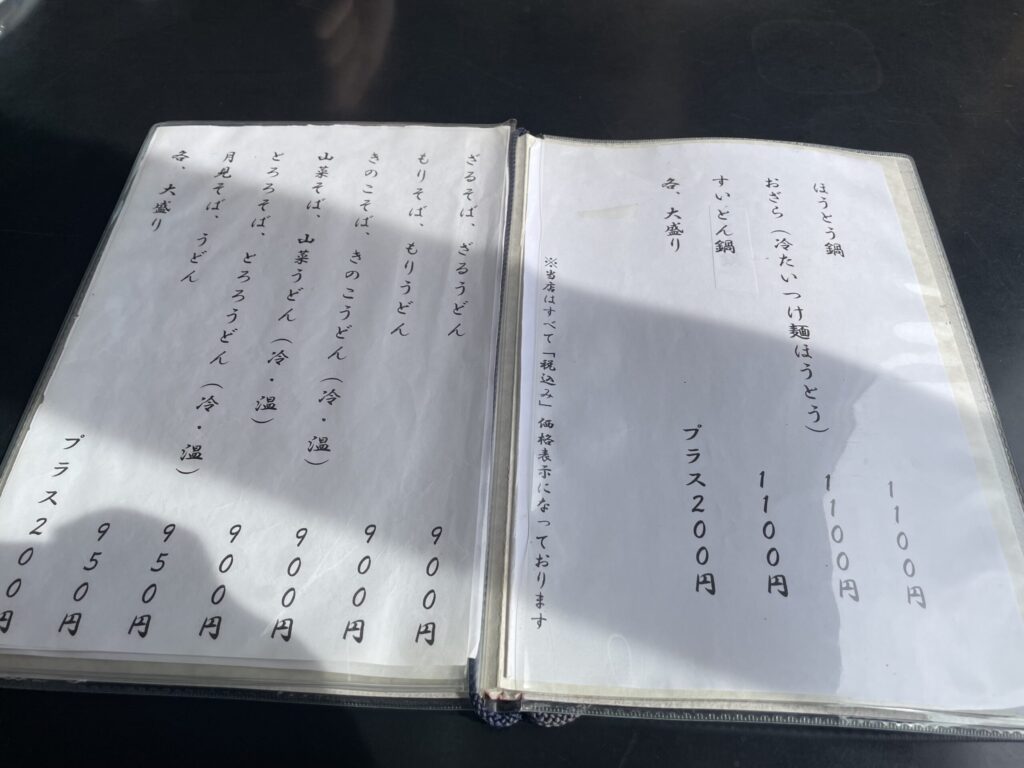 ほうとう鍋 1100円
おざら(冷たいつけ麺ほうとう) 1100円
すいとん鍋 1100円
各、大盛り プラス200円
※当店はすべて「税込み」価格表示になっております
ざるそば、ざるうどん 900円
もりそば、もりうどん 900円
きのこそば、きのこうどん(冷・温) 900円
山菜そば、山菜うどん(冷・温) 900円
とろろそば、とろろうどん(冷・温) 950円
月見そば、うどん 950円
各、大盛り プラス200円